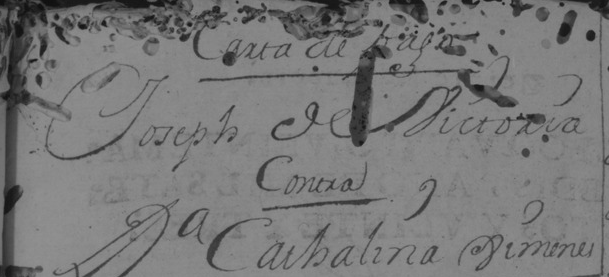 Carta de pago
Joseph de Victoria
Contra
Da Cathalina Ximenes